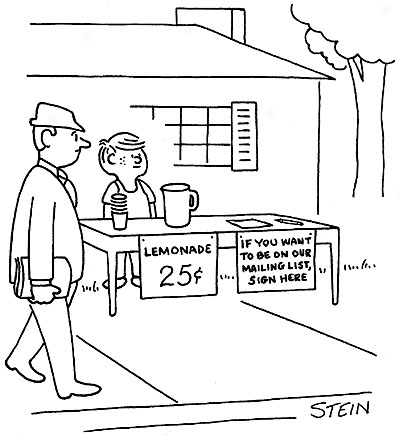 LEMONADE
25¢
IF YOU WANT
TO BE ON OUR
MAILING LIST,
SIGN HERE
STEIN